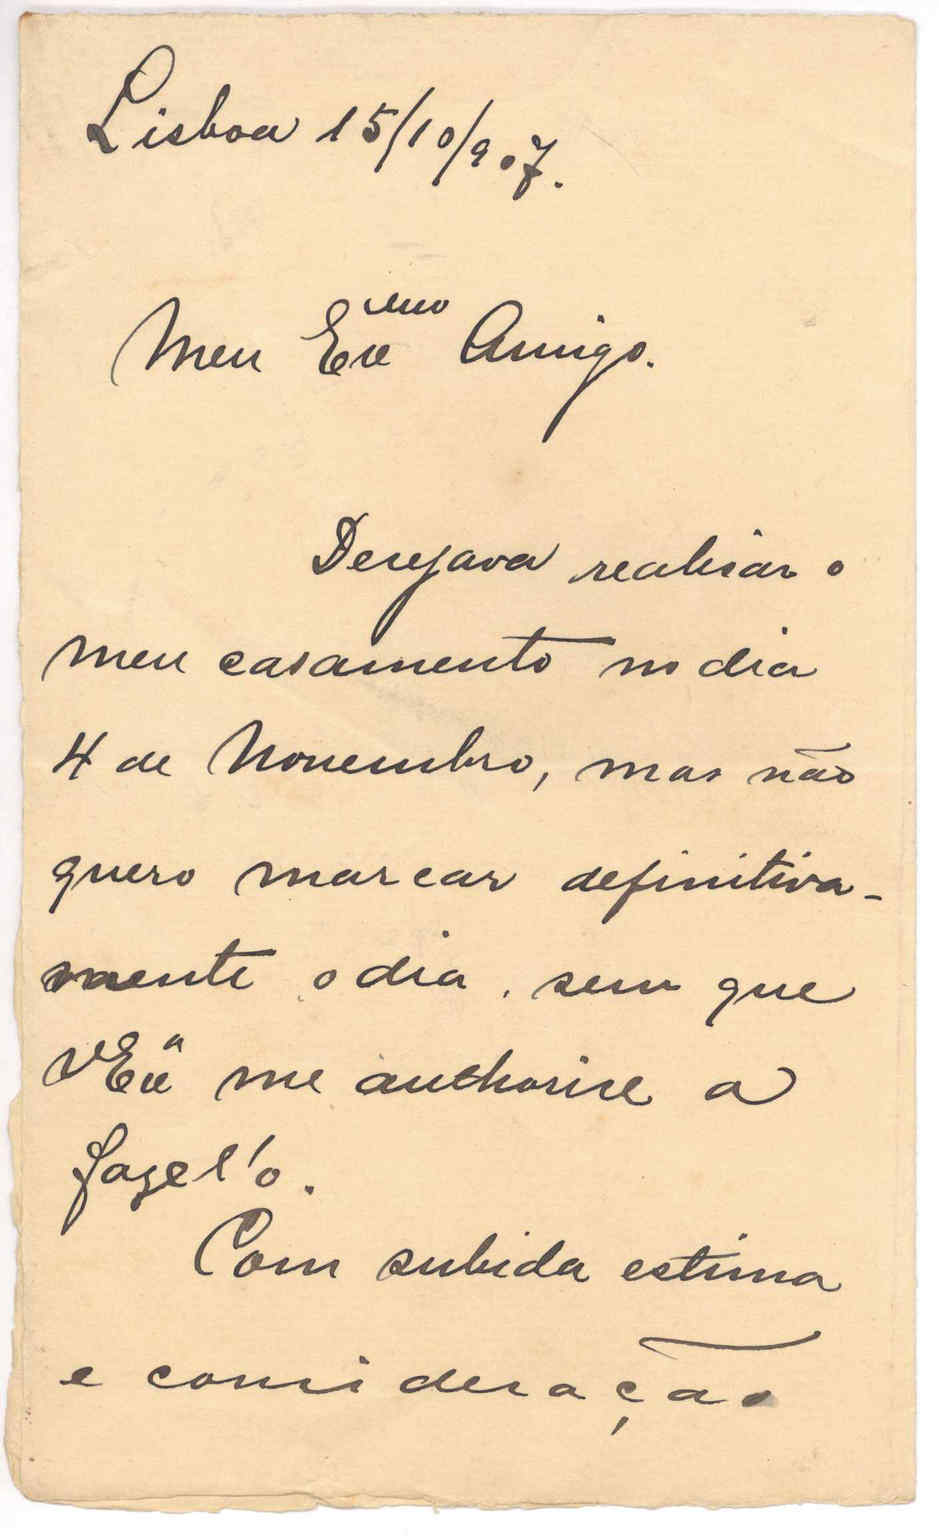 Lisboa 15/10/907.
Meu Exmo Amigo.
Desejava realisar o
meu casamento no dia
4 de Novembro, mas não
quero marcar definitiva-
mente o dia, sem que
VExa me authorise a
fazel'o.
Com subida estima
e consideração